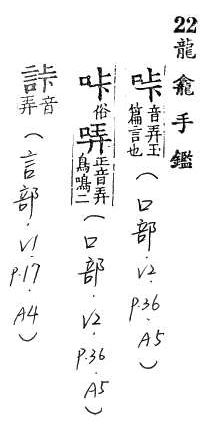 22 龍龕手鑑
咔 音弄玉篇言也 (口部.V2.P.36.A5)
咔 俗 哢 正音弄鳥鳴二 (口部.V2.P.36.A5)
音弄 (言部.V1.P.17.A4)